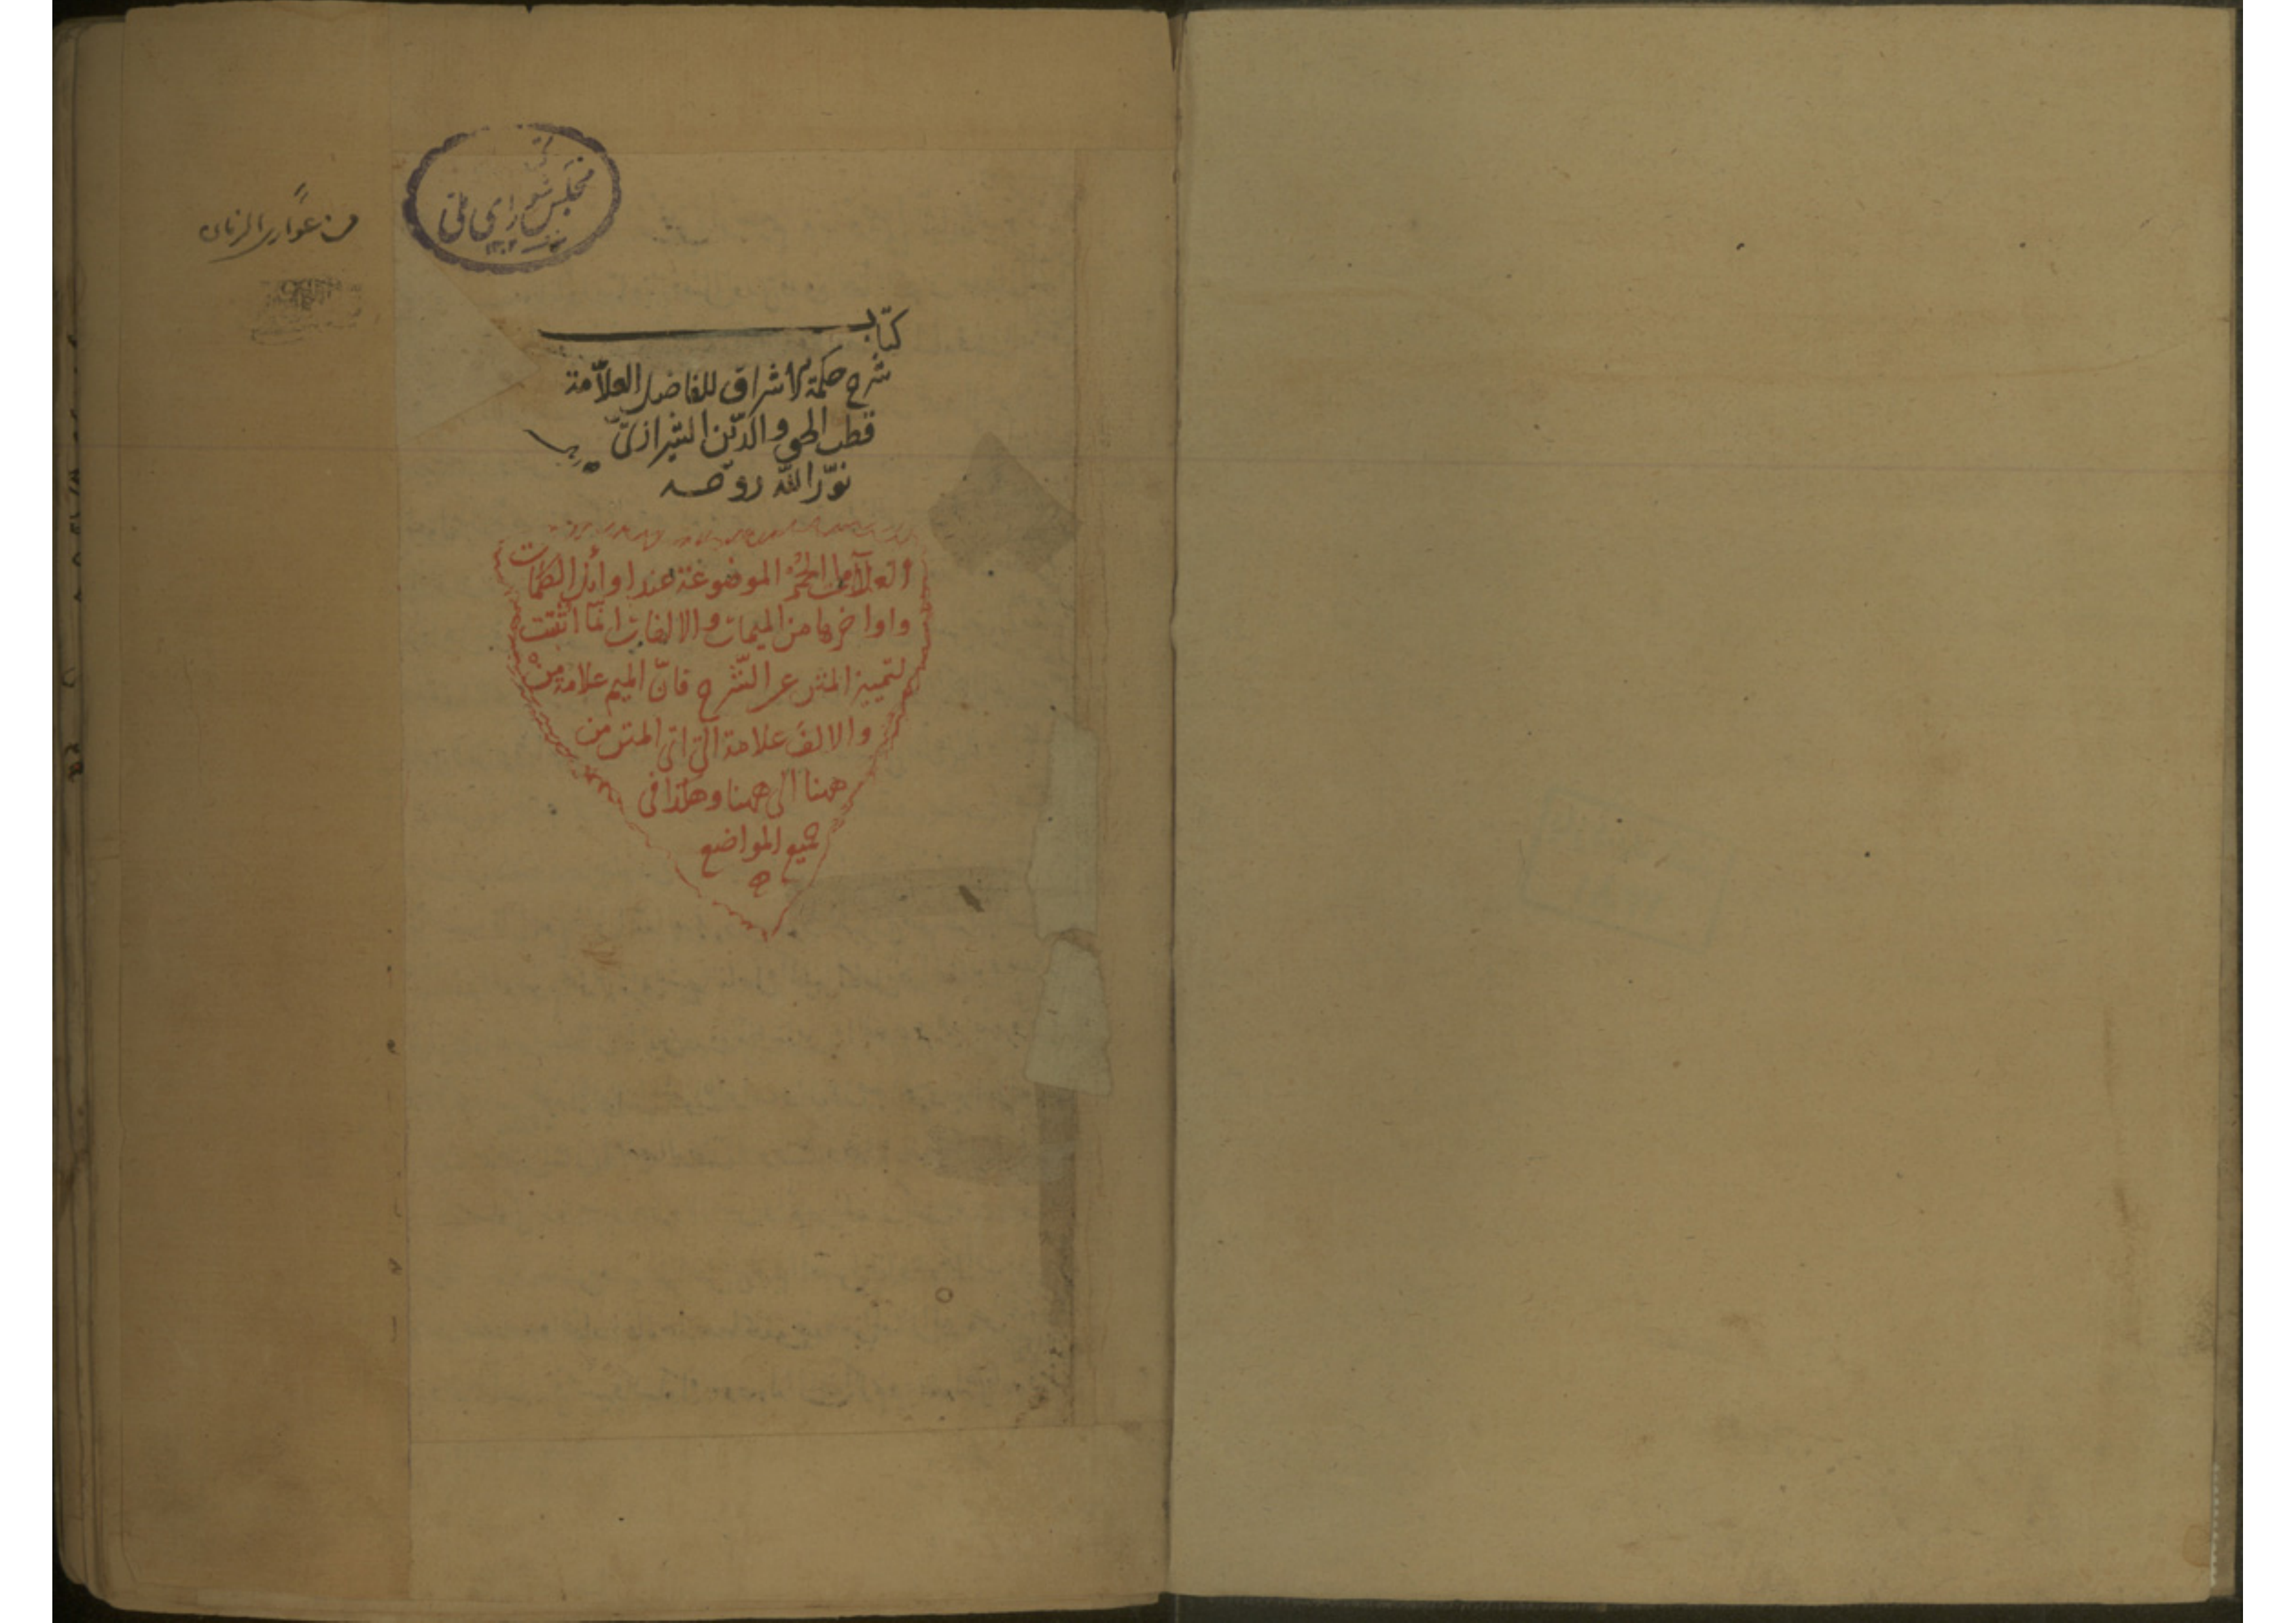 مجلس شورای ملی
۱۳۰۲
من عواری الزمان
کتاب
شرح حكمة الاشراق للفاضل العلّامة
قطب الحق والدّين الشيرازىّ
نوّر الله روحه
والعلامات الحُمْر الموضوعة عند اوائل الكلمات
واواخرها من الميمات والالفات انّما اثبتت
لتمييز المتن عن الشّرح فانّ الميم علامة مِنْ
والالف علامة الى اى المتن من
ههنا الى ههنا وهكذا فى
جميع المواضع